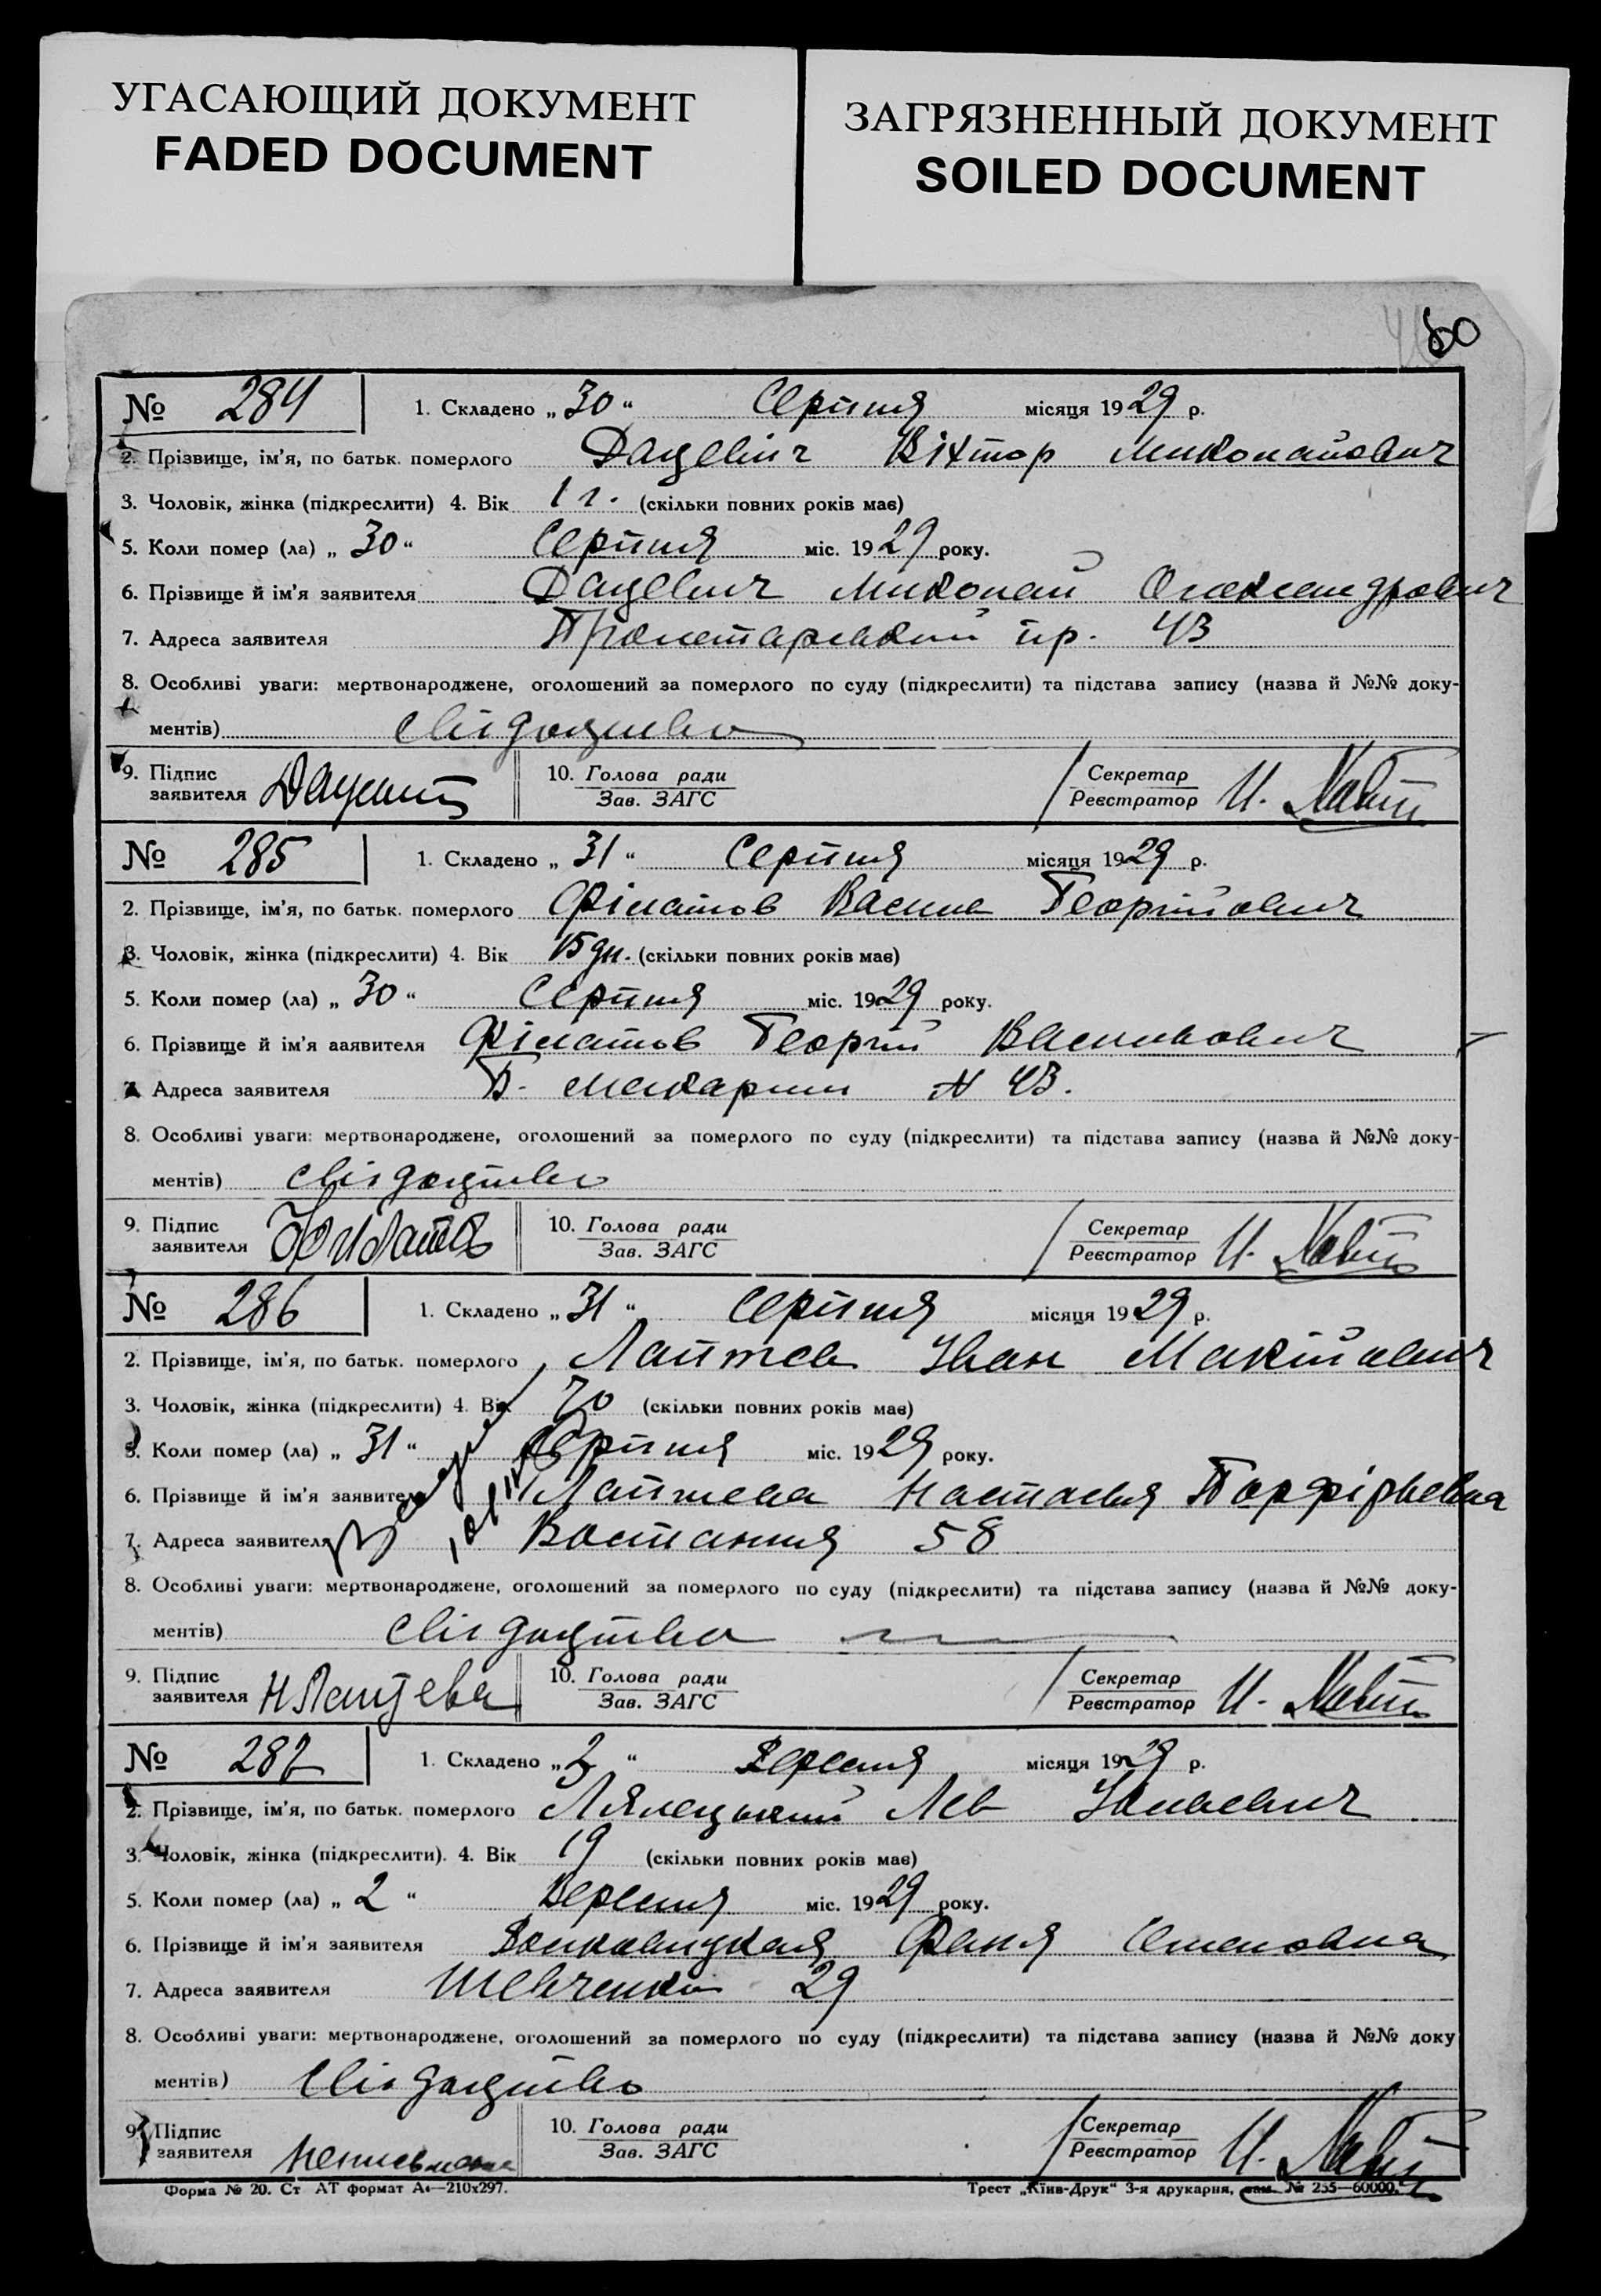 УГАСАЮЩИЙ ДОКУМЕНТ
FADED DOCUMENT
ЗАГРЯЗНЕННЫЙ ДОКУМЕНТ
SOILED DOCUMENT
60
№ 284 1. Складено „ 30 “ Серпня місяця 1929 р.
2. Прізвище, ім’я, по батьк. померлого Дацевіч Віктор Миколайович
3. Чоловік, жінка (підкреслити) 4. Вік 1 г. (скільки повних років має)
5. Коли помер (ла) „ 30 “ Серпня міс. 1929 року.
6. Прізвище й ім’я заявителя Дацевич Миколай Олександрович
7. Адреса заявителя Пролетарский пр. 43
8. Особливі уваги: мертвонароджене, оголошений за померлого по суду (підкреслити) та підстава запису (назва й №№ доку-
ментів)
9. Підпис заявителя 10. Голова ради Зав. ЗАГС Секретар Реєстратор И.
№ 285 1. Складено „ 31 “ Серпня місяця 1929 р.
2. Прізвище, ім’я, по батьк. померлого Філатов Василь Георгійович
3. Чоловік, жінка (підкреслити) 4. Вік 15 дн. (скільки повних років має)
5. Коли помер (ла) „ 30 “ Серпня міс. 1929 року.
6. Прізвище й ім’я ааявителя Філатов Георгій Васильович
7. Адреса заявителя № 43.
8. Особливі уваги: мертвонароджене, оголошений за померлого по суду (підкреслити) та підстава запису (назва й №№ доку-
ментів)
9. Підпис заявителя 10. Голова ради Зав. ЗАГС Секретар Реєстратор И.
№ 286 1. Складено „ 31 “ Серпня місяця 1929 р.
2. Прізвище, ім’я, по батьк. померлого Лаптев Іван
3. Чоловік, жінка (підкреслити) 4. Вік 70 (скільки повних років має)
5. Коли помер (ла) „ 31 “ Серпня міс. 1929 року.
6. Прізвище й ім’я заявителя Лаптева Настасья Порфірьевна
7. Адреса заявителя Востания 58
8. Особливі уваги: мертвонароджене, оголошений за померлого по суду (підкреслити) та підстава запису (назва й №№ доку-
ментів)
9. Підпис заявителя Н Лаптева 10. Голова ради Зав. ЗАГС Секретар Реєстратор И.
№ 287 1. Складено „ 2 “ Вересня місяця 1929 р.
2. Прізвище, ім’я, по батьк. померлого Лев
3. Чоловік, жінка (підкреслити). 4. Вік 19 (скільки повних років має)
5. Коли помер (ла) „ 2 “ Вересня міс. 1929 року.
6. Прізвище й ім’я заявителя Фаня Семеновна
7. Адреса заявителя Шевченко 29
8. Особливі уваги: мертвонароджене, оголошений за померлого по суду (підкреслити) та підстава запису (назва й №№ доку
ментів)
9. Підпис заявителя 10. Голова ради Зав. ЗАГС Секретар Реєстратор И.
Форма № 20. Ст АТ формат А4—210х297. Трест „Київ-Друк“ 3-я друкарня, зам. № 255—60000.